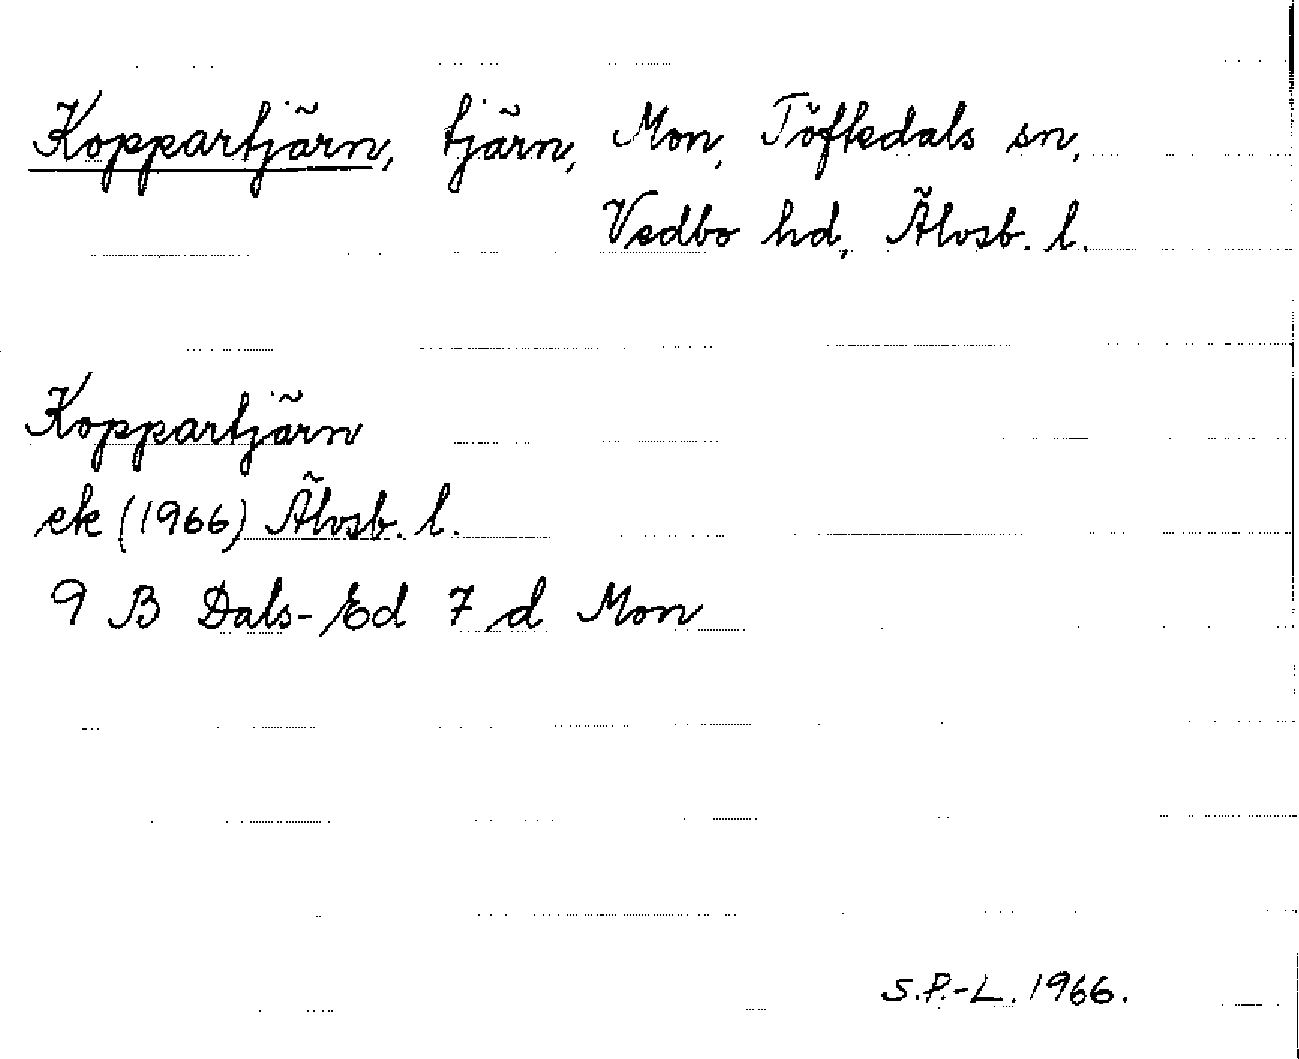 Koppartjärn, tjärn, Mon, Töftedals sn,
Vedbo hd, Älvsb. l.
Koppartjärn
ek (1966) Älvsb. l.
9 B Dals-Ed 7 d Mon
S.P.-L. 1966.